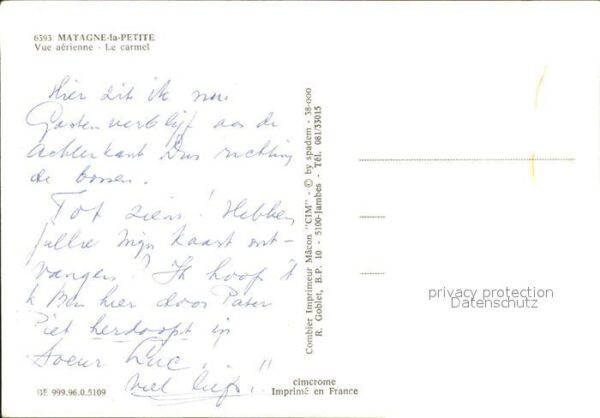 6393 MATAGNE-la-PETITE
Vue aérienne - Le carmel
Hier zit ik nu
Gastenverblijf aan de
achterkant dus richting
de bossen.
Tot ziens! Hebben
jullie mijn kaart ont-
vangen? Ik hoop 't
Ik ben hier door Pater
Piet herdoopt in
Soeur Luc...!!
Veel liefs!
BE 999.96.0.5109
Combier Imprimeur Mâcon "CIM" - © by spadem - 38-000
R. Goblet, B.P. 10 - 5100-Jambes - Tél. 081/33015
cimcrome
Imprimé en France
privacy protection
Datenschutz